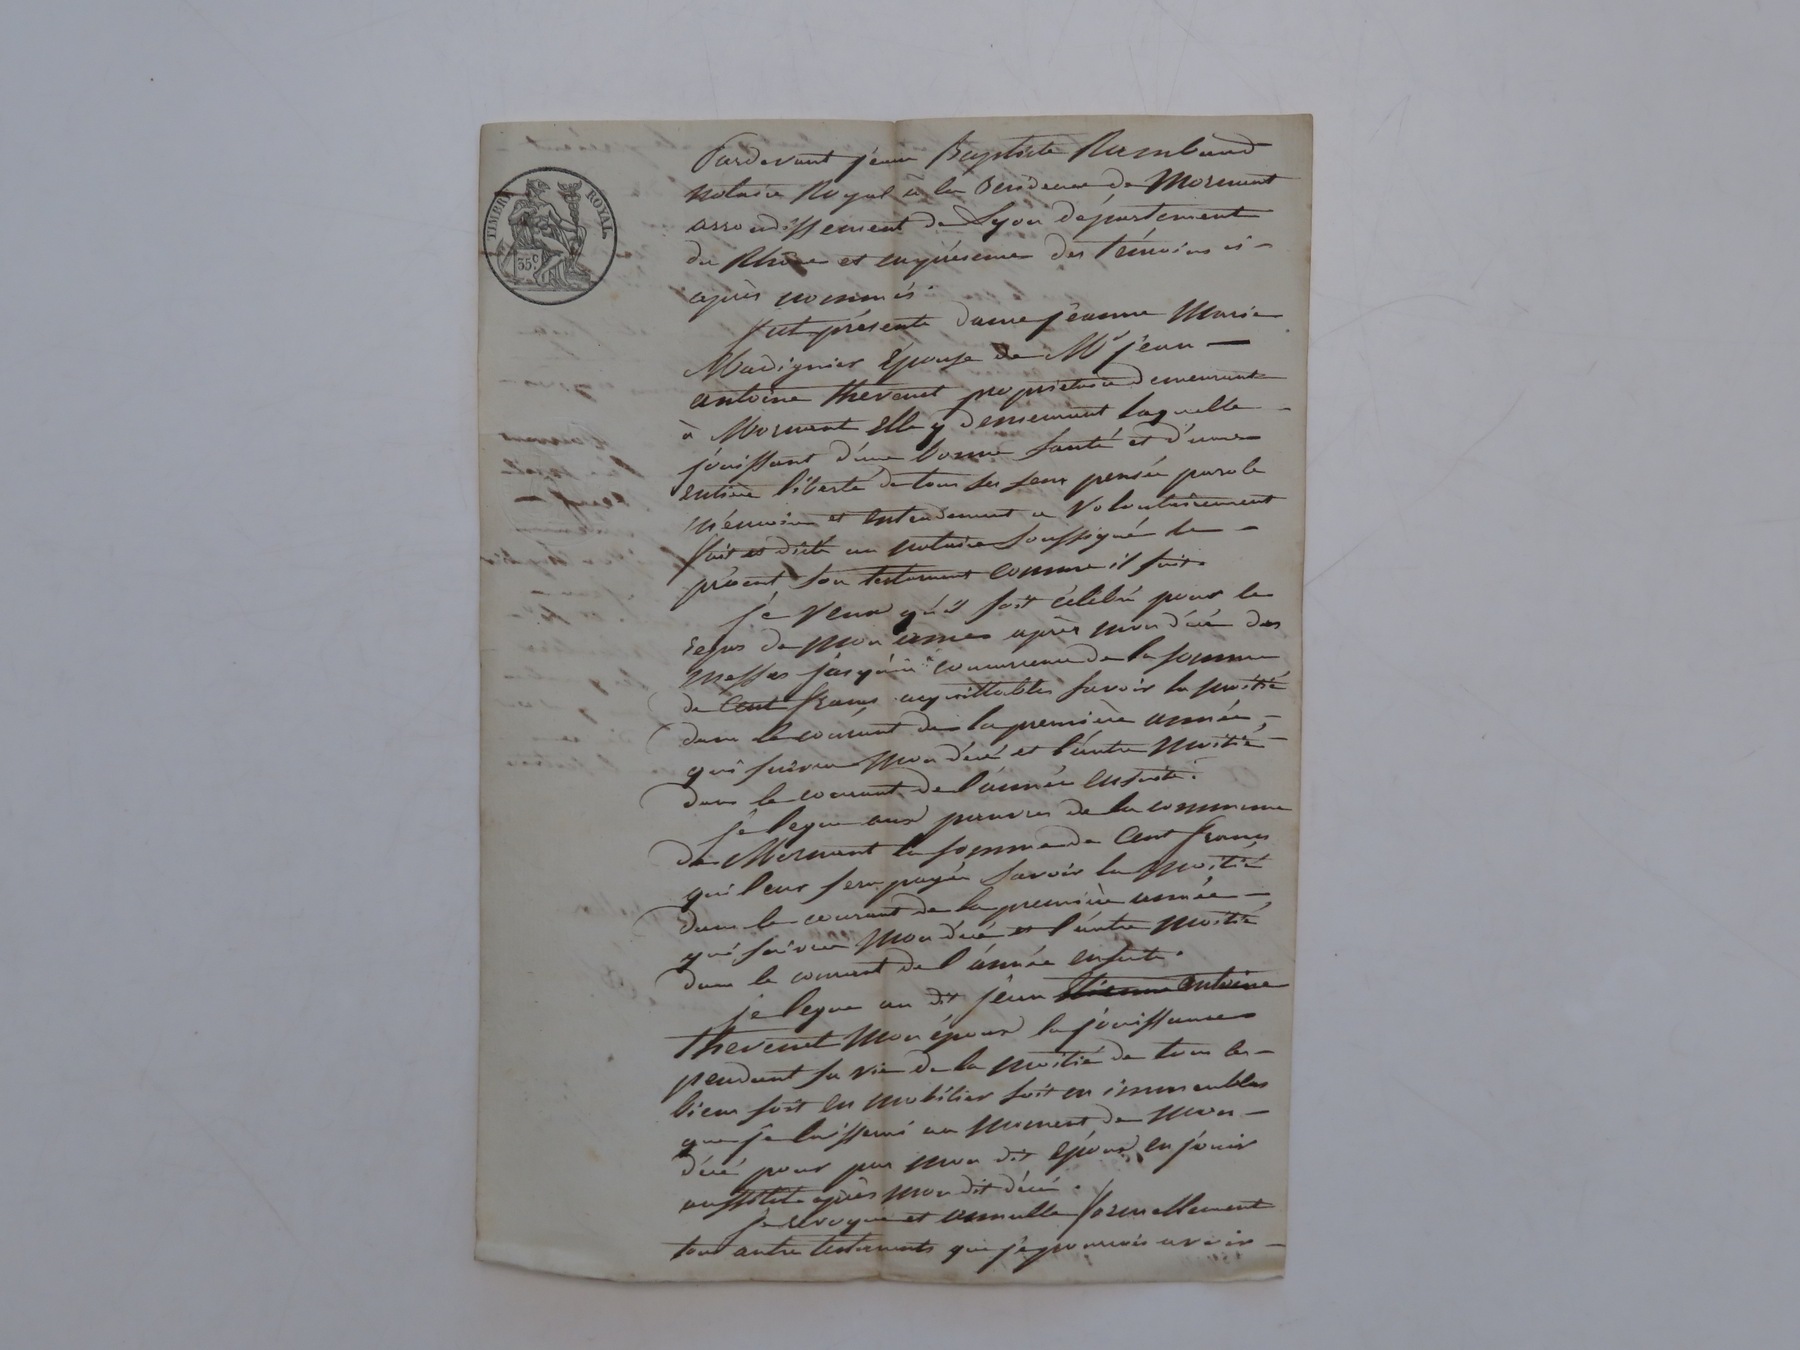 TIMBRE ROYAL
35 c
Pardevant jean Baptiste Rambaud
notaire Royal à la Residence de Mornant
arrondissement de Lyon département
du Rhône et en présence des témoins ci-
après nommés.
fut présente dame jeanne Marie
Madignier Épouse de Mr jean
antoine thevenet propriétaire demeurant
à Mornant Elle y demeurant laquelle
jouissant d'une bonne Santé et d'une
entière liberté de tous ses sens pensée parole
mémoire et entendement a Volontairement
fait et dicté au notaire Soussigné le
présent Son testament comme il suit.
je veux qu'il soit célébré pour le
repos de mon ame après mon décé des
messes jusqu'à concurrence de la somme
de Cent francs acquittables savoir la moitié
dans le courant de la première année,
qui suivra mon décé et l'autre moitié
dans le courant de l'année ensuite.
je legue aux pauvres de la commune
de Mornant la somme de Cent francs
qui leur sera payée savoir la moitié
dans le courant de la première année
qui suivra mon décé et l'autre moitié
dans le courant de l'année ensuite.
je legue au dit jean Etienne antoine
thevenet mon époux la jouissance
pendant sa vie de la moitié de tous les
biens soit en mobilier soit en immeubles
que je laisserai au moment de mon
décé pour par mon dit époux en jouir
aussitot après mon dit décé.
je revoque et annulle formellement
tous autre testaments que je pourrois avoir